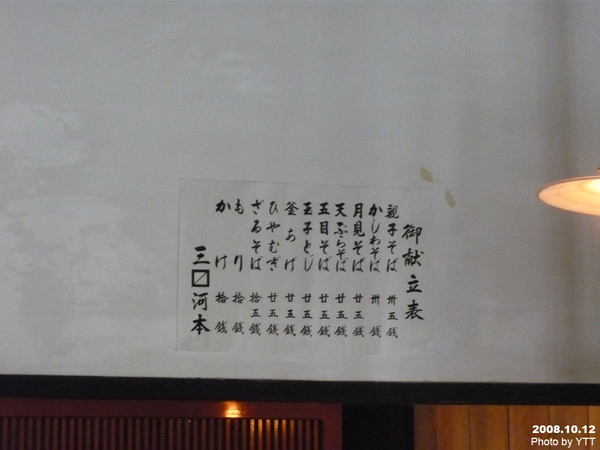 御献立表
親子そば 卅五銭
かしわそば 卅銭
月見そば 廿五銭
天ぷらそば 廿五銭
五目そば 廿五銭
玉子とじ 廿五銭
釜あげ 廿五銭
ひやむぎ 廿五銭
ざるそば 拾五銭
もり 拾銭
かけ 拾銭
三〼河本
2008.10.12
Photo by YTT